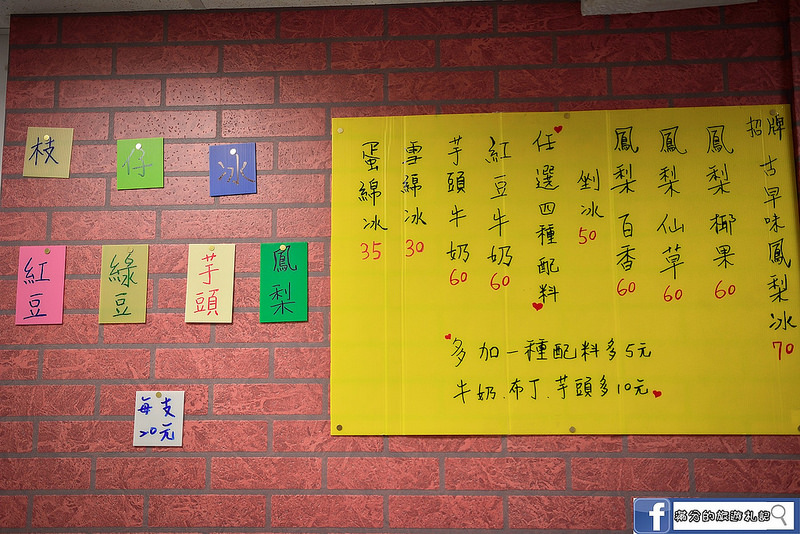 枝仔冰
紅豆
綠豆
芋頭
鳳梨
每支
20元
招牌古早味鳳梨冰70
鳳梨椰果60
鳳梨仙草60
鳳梨百香60
剉冰50
任選四種配料
紅豆牛奶60
芋頭牛奶60
雪綿冰30
蛋綿冰35
多加一種配料多5元
牛奶.布丁.芋頭多10元
滿分的旅遊札記